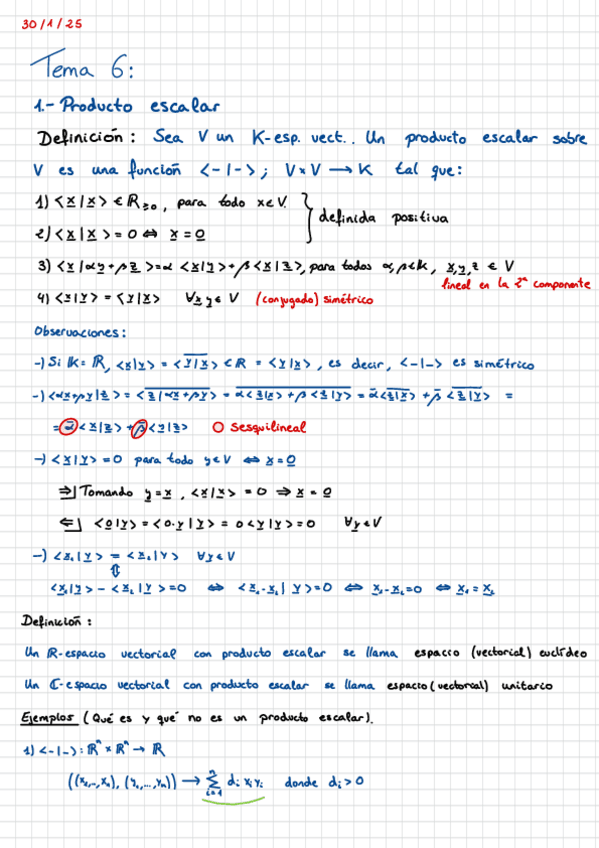 30/1/25
Tema 6:
1.- Producto escalar
Definición: Sea V un K-esp. vect.. Un producto escalar sobre
V es una función <-|->; V×V → K tal que:
1) <x|x> ∈ R≥0, para todo x∈V.
2) <x|x> = 0 ⇔ x = 0
definida positiva
3) <x|αy+βz> = α<x|y> + β<x|z>, para todos α,β∈K, x,y,z ∈ V
lineal en la 2ª componente
4) <x|y> = <y|x> ∀x,y ∈ V (conjugado) simétrico
Observaciones:
-) Si K = R, <x|y> = \overline{<y|x>} ∈ R = <y|x>, es decir, <-|-> es simétrico
-) <αx+βy|z> = \overline{<z|αx+βy>} = \overline{α<z|x> + β<z|y>} = ᾱ\overline{<z|x>} + β̄\overline{<z|y>} =
= ᾱ<x|z> + β̄<y|z> O Sesquilineal
-) <x|y> = 0 para todo y∈V ⇔ x = 0
⇒| Tomando y = x, <x|x> = 0 ⇒ x = 0
⇐| <0|y> = <0·y|y> = 0<y|y> = 0 ∀y∈V
-) <x₁|y> = <x₂|y> ∀y∈V
⇕
<x₁|y> - <x₂|y> = 0 ⇔ <x₁-x₂|y> = 0 ⇔ x₁-x₂ = 0 ⇔ x₁ = x₂
Definición:
Un R-espacio vectorial con producto escalar se llama espacio (vectorial) euclídeo
Un C-espacio vectorial con producto escalar se llama espacio (vectorial) unitario
Ejemplos (Qué es y qué no es un producto escalar).
1) <-|-> : Rⁿ × Rⁿ → R
((x₁,...,xₙ), (y₁,...,yₙ)) → ∑ᵢ₌₁ⁿ dᵢ xᵢ yᵢ donde dᵢ > 0